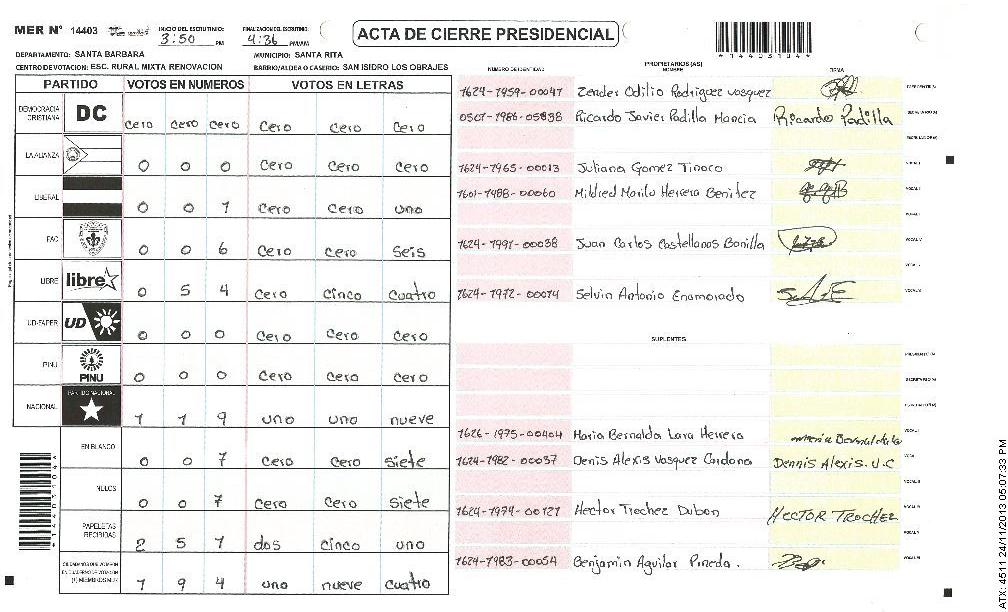 MER N° 14403 INICIO DEL ESCRUTINIO: 3:50 PM FINALIZACION DEL ESCRUTINIO: 4:36 PM/AM
ACTA DE CIERRE PRESIDENCIAL
*14403104*
DEPARTAMENTO: SANTA BARBARA MUNICIPIO: SANTA RITA
CENTRO DE VOTACION: ESC. RURAL MIXTA RENOVACION BARRIO/ALDEA O CASERIO: SAN ISIDRO LOS OBRAJES
PARTIDO VOTOS EN NUMEROS VOTOS EN LETRAS
DEMOCRACIA CRISTIANA DC cero cero cero cero cero cero
LA ALIANZA 0 0 0 cero cero cero
LIBERAL 0 0 1 cero cero uno
PAC 0 0 6 cero cero seis
LIBRE libre 0 5 4 cero cinco cuatro
UD-FAPER UD 0 0 0 cero cero cero
PINU PINU 0 0 0 cero cero cero
NACIONAL PARTIDO NACIONAL 1 1 9 uno uno nueve
EN BLANCO 0 0 7 cero cero siete
NULOS 0 0 7 cero cero siete
PAPELETAS RECIBIDAS 2 5 1 dos cinco uno
CIUDADANOS QUE VOTARON EN CUADERNO DE VOTACION (+) MIEMBROS MER 1 9 4 uno nueve cuatro
*14403104*
PROPIETARIOS (AS)
NUMERO DE IDENTIDAD NOMBRE FIRMA
1624-1959-00047 Zender Odilio Rodriguez Vasquez PRESIDENTE (A)
0501-1986-05838 Ricardo Javier Padilla Mancia Ricardo Padilla SECRETARIO (A)
ESCRUTADOR (A)
1624-1965-00013 Juliana Gomez Tinoco VOCAL I
1601-1988-00060 Mildred Marilo Herrera Benitez VOCAL II
VOCAL III
1624-1991-00038 Juan Carlos Castellanos Bonilla VOCAL IV
VOCAL V
1624-1972-00074 Selvin Antonio Enamorado VOCAL VI
SUPLENTES
PRESIDENTE (A)
SECRETARIO (A)
ESCRUTADOR (A)
1626-1975-00404 Maria Bernalda Lara Herrera VOCAL I
1624-1982-00037 Denis Alexis Vasquez Cardona Dennis Alexis. V.C VOCAL II
VOCAL III
1624-1974-00121 Hector Trochez Dubon HECTOR TROCHEZ VOCAL IV
VOCAL V
1624-1983-00054 Benjamin Aguilar Pineda. VOCAL VI
ATX: 4511 24/11/2013 05:07:33 PM